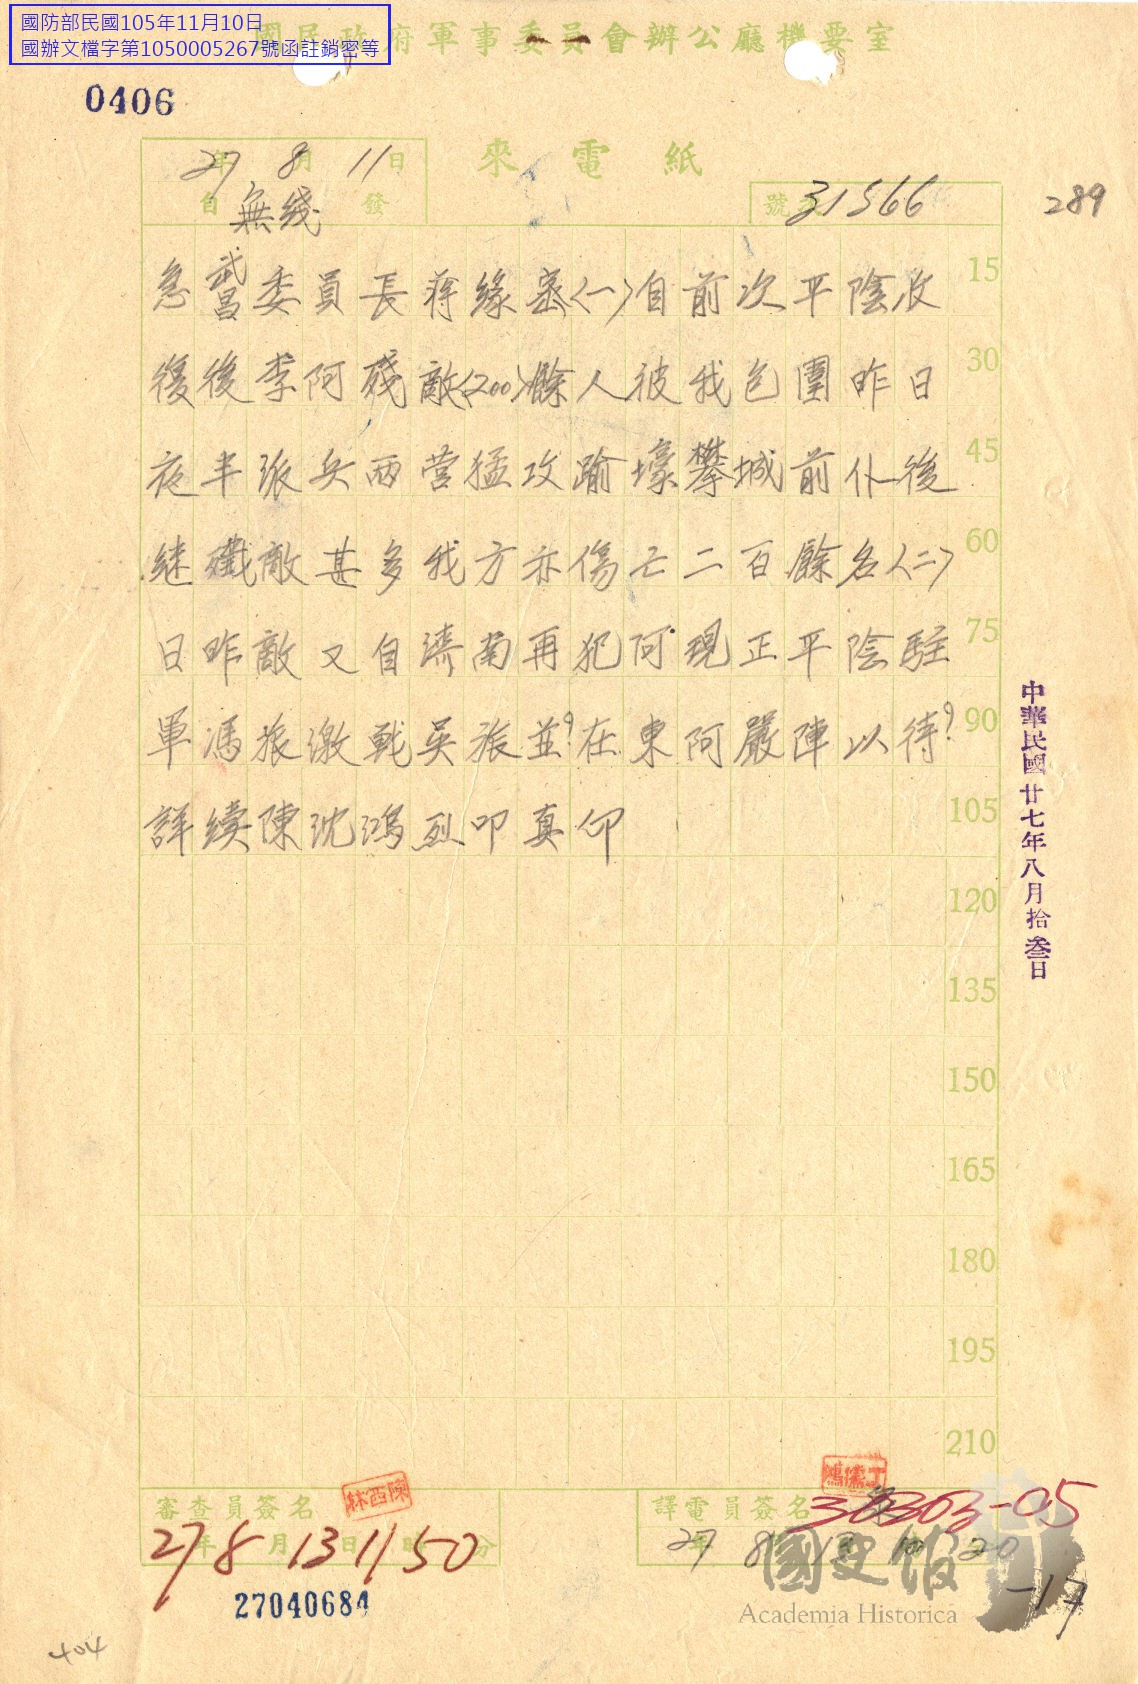 國防部民國105年11月10日
國辦文檔字第1050005267號函註銷密等
國民政府軍事委員會辦公廳機要室
0406
來電紙
27年8月11日
自無綫發
號次31566
289
急武昌委員長蔣緣密〈一〉自前次平陰收
15
復後李阿殘敵〈200〉餘人被我包圍昨日
30
夜半派兵两营猛攻踰壕攀城前仆後
45
継殲敵甚多我方亦傷亡二百餘名〈二〉
60
日昨敵又自濟南再犯阿現正平陰駐
75
軍馮旅激戰吳旅並?在東阿嚴陣以待?
90
詳續陳沈鴻烈叩真仰
105
120
135
150
165
180
195
210
中華民國廿七年八月拾叁日
審查員簽名
陳西林
27年8月13日11時50分
27040684
譯電員簽名
丁儒鴻
30363-05
27 8 13 20
-17
國史館
Academia Historica
404